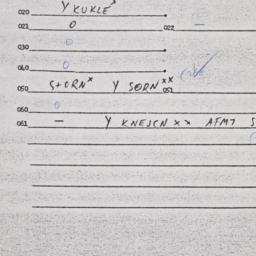 020 Y KUKLE
021 0 022 —
030 0
040 0
050 STORN x Y SORN xx 051
060 0
061 — Y KNEJCN xx AFM7 S